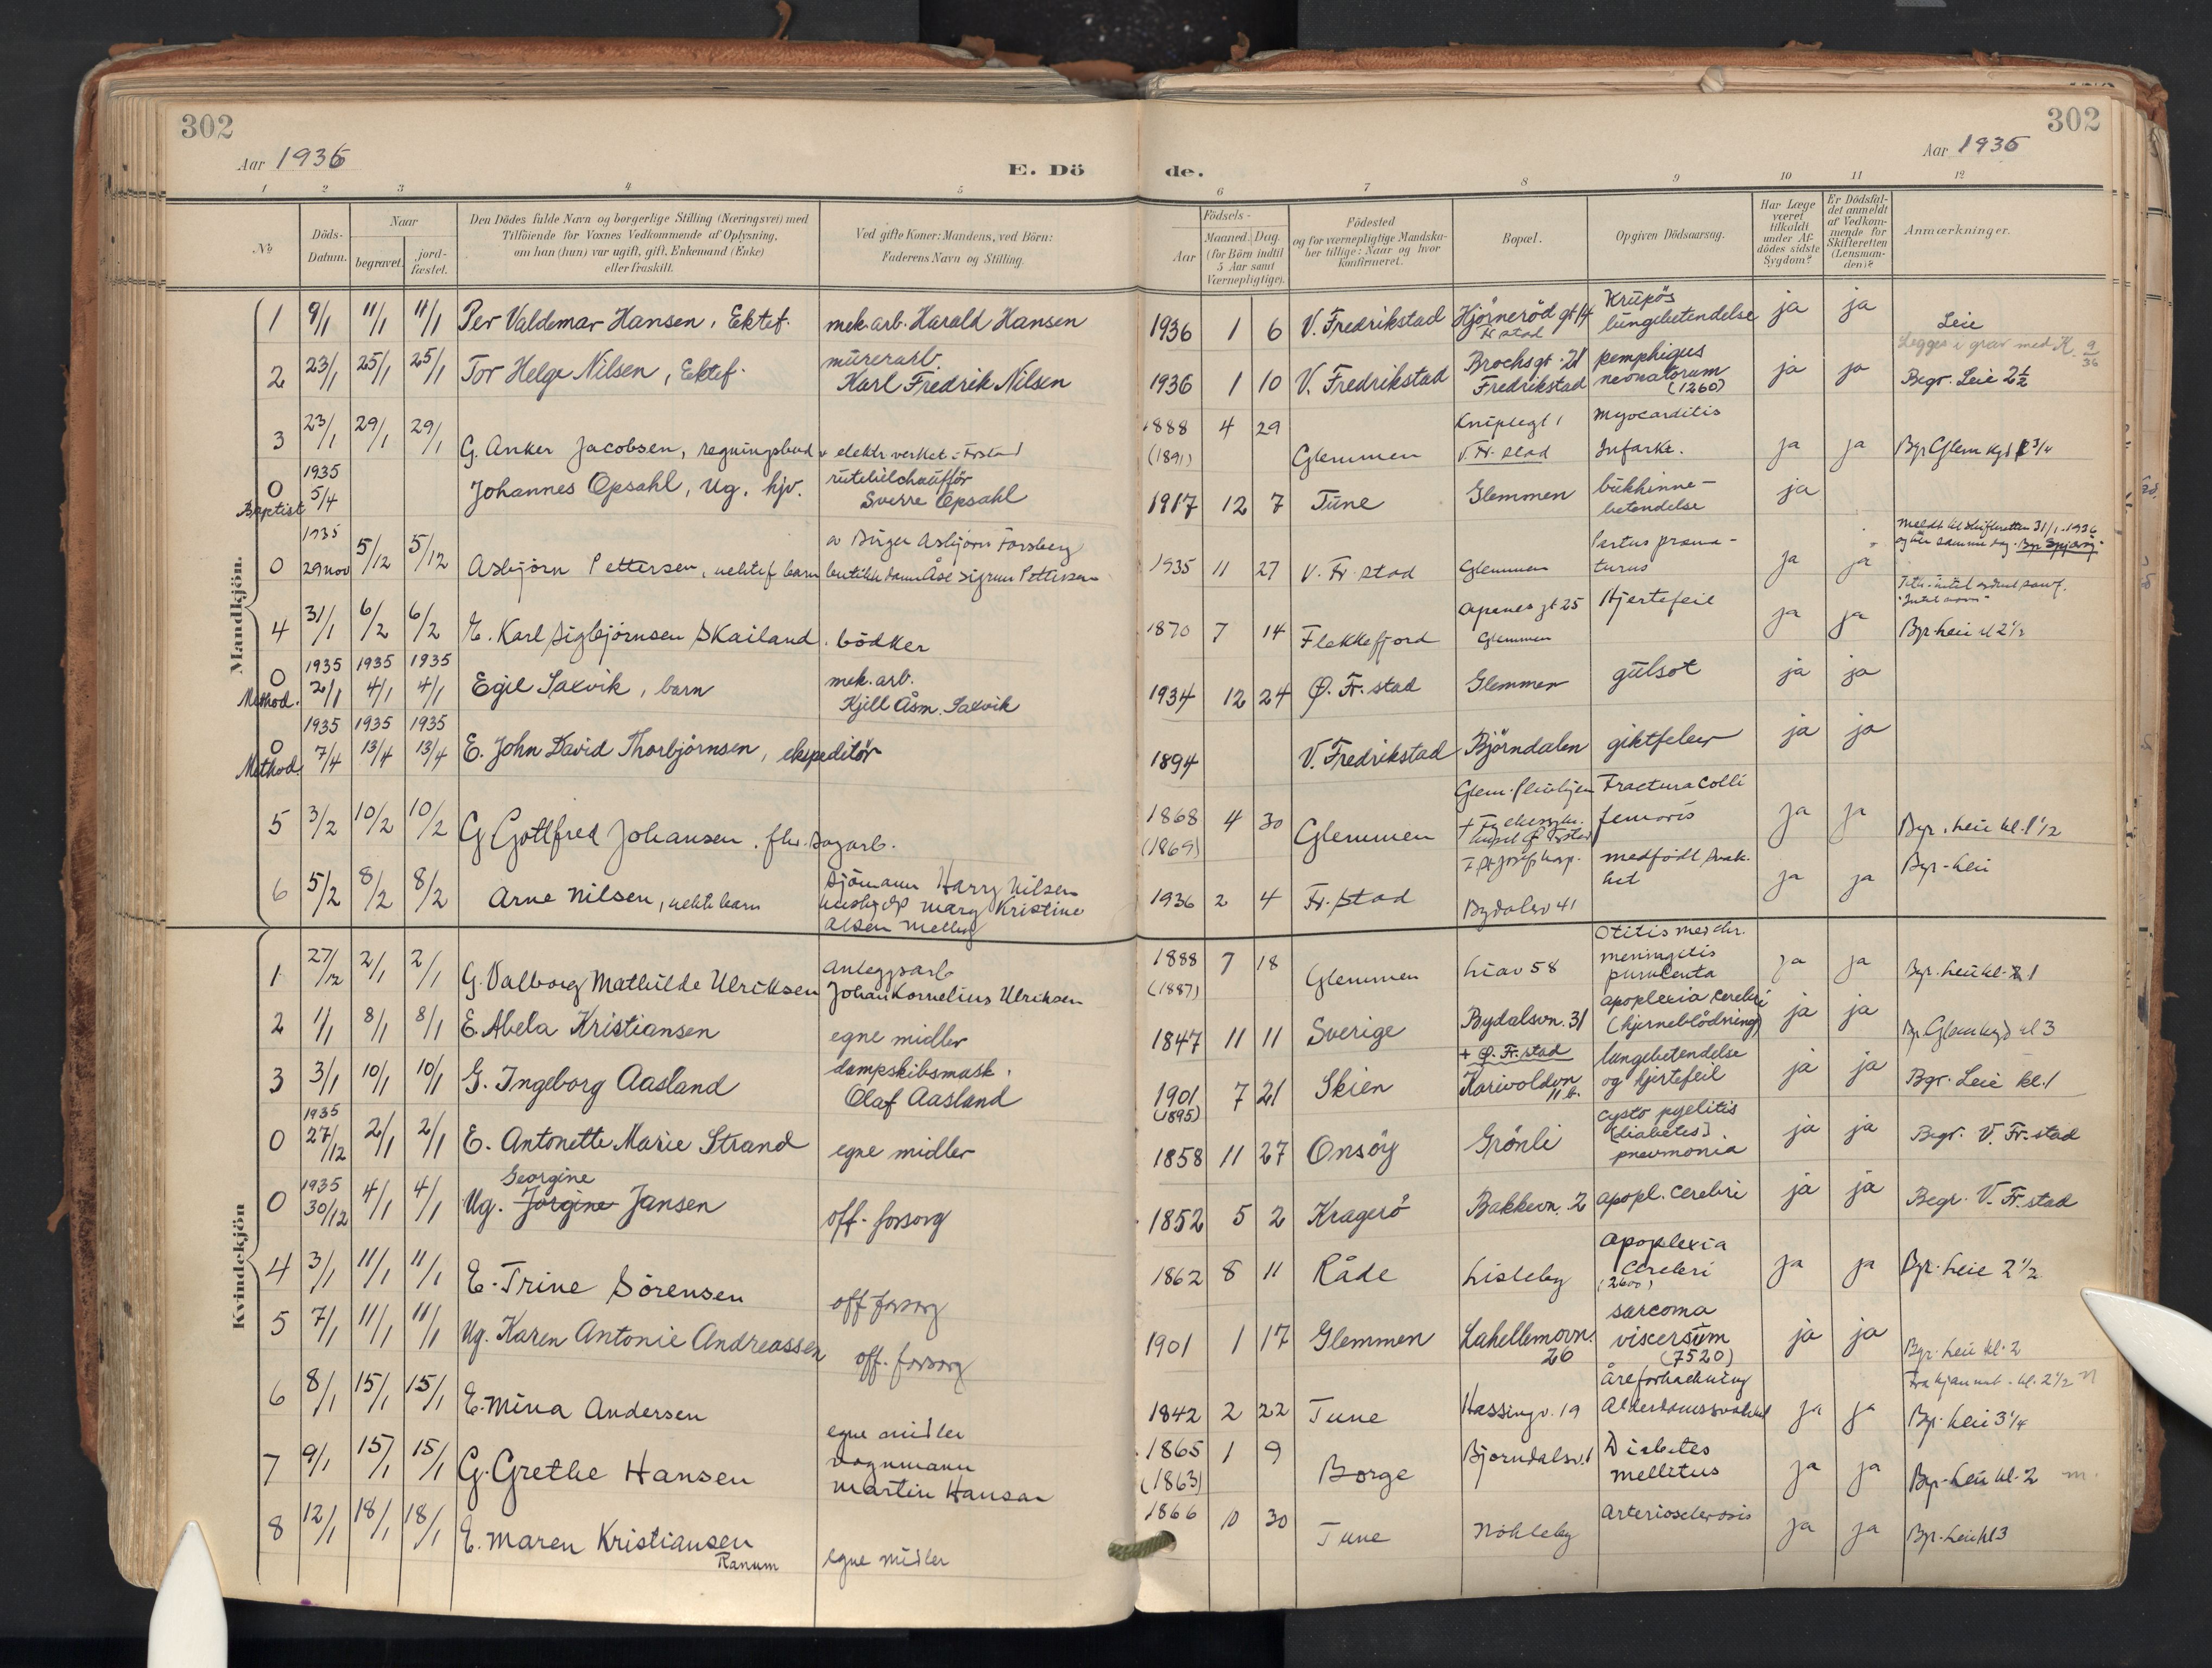 302
302
Aar 1936
E. Dö
de.
Aar 1936
1 2 3 4 5 6 7 8 9 10 11 12
№
Döds-
Datum.
Naar
begravet.
jord-
fæstet.
Den Dödes fulde Navn og borgerlige Stilling (Næringsvei) med
Tilföiende for Voxnes Vedkommende af Oplysning,
om han (hun) var ugift, gift, Enkemand (Enke)
eller fraskilt.
Ved gifte Koner: Mandens, ved Börn:
Faderens Navn og Stilling.
Födsels-
Aar
Maaned. Dag.
(for Börn indtil
5 Aar samt
Værnepligtige).
Födested
og for værnepligtige Mandska-
ber tillige: Naar og hvor
konfirmeret.
Bopæl.
Opgiven Dödsaarsag.
Har Læge
været
tilkaldt
under Af-
dödes sidste
Sygdom?
Er Dödsfal-
det anmeldt
af Vedkom-
mende for
Skifteretten
(Lensman-
den)?
Anmærkninger.
Mandkjön.
1 9/1 11/1 11/1 Per Valdemar Hansen, Ektef. mek. arb. Harald Hansen 1936 1 6 V. Fredrikstad Hjörneröd gt 14 Krupös
Fr stad lungebetendelse ja ja Leie
Legges i grav med K. 9/36
2 23/1 25/1 25/1 Tor Helge Nilsen, Ektef. murerarb.
Karl Fredrik Nilsen 1936 1 10 V. Fredrikstad Brochsgt. 21
Fredrikstad pemphigus
neonatorum
(1260) ja ja Begr. Leie 2½
3 23/1 29/1 29/1 G. Anker Jacobsen, regningsbud v elektr verket - Frstad 1888 4 29
(1891) Glemmen Kniplegt 1
V. Fr. stad myocarditis
Infarkt. ja ja Bgr Glem kgd 3/4
0 1935
Baptist 5/4 Johannes Opsahl, Ug. hjv. rutebilchaufför
Sverre Opsahl 1917 12 7 Tune Glemmen bukhinne-
betendelse ja
0 1935
29 nov 5/12 5/12 Asbjörn Pettersen, uektef barn av Birger Asbjörn Forsberg
butikkdame Åse Sigrun Pettersen 1935 11 27 V. Fr. stad Glemmen Partus prema-
turus ja ja meldt til skifteretten 31/1-1936
4 31/1 6/2 6/2 E. Karl Sigbjörnsen Skailand. bödker 1870 7 14 Flekkefjord Apenes gt 25
Glemmen Hjertefeil ja ja Bgr. Leie kl 2½
0 1935 1935 1935
Method. 2/1 4/1 4/1 Egil Saxvik, barn mek. arb.
Kjell Åsm. Saxvik 1934 12 24 Ø. Fr. stad Glemmen gulsot ja ja
0 1935 1935 1935
Method 7/4 13/4 13/4 E. John David Thorbjörnsen, ekspeditör 1894 V. Fredrikstad Björndalen giktfeber ja ja
5 3/2 10/2 10/2 G Gottfred Johansen. fhv. Sagarb. 1868 4 30
(1869) Glemmen Fractura Colli
femoris ja ja Bgr. Leie kl. 1½
6 5/2 8/2 8/2 Arne Nilsen, uekte barn Sjömann Harry Nilsen
Mary Kristine 1936 2 4 Fr. stad Bydalsv 41 medfödt svak-
het ja ja Bgr - Leie
Kvindekjön
1 27/12 2/1 2/1 G. Valborg Mathilde Ulriksen Anleggsarb
Johan Kornelius Ulriksen 1888 7 18
(1887) Glemmen Lian 58 Otitis med chr.
meningitis
purulenta ja ja Bgr. Leie kl. 1
2 1/1 8/1 8/1 E. Abela Kristiansen egne midler 1847 11 11 Sverige Bydalsvn. 31 apoplexia cerebri
(hjerneblödning) ja ja Bgr Glem kgd kl 3
3 3/1 10/1 10/1 G. Ingeborg Aasland dampskibsmask.
Olaf Aasland 1901 7 21
(1895) Skien + Ø. Fr. stad
Karivoldvn
11 b. lungebetendelse
og hjertefeil ja ja Bgr. Leie kl. 1
0 1935
27/12 2/1 2/1 E. Antonette Marie Strand egne midler 1858 11 27 Onsöy Grönli Cysto pyelitis
[diabetes]
pneumonia ja ja Begr. V. Fr. stad
0 1935
30/12 4/1 4/1 Georgine
Ug. Jörgine Jansen off. forsorg 1852 5 2 Kragerö Bakkevn. 2 apopl. cerebri ja ja Begr. V. Fr. stad
4 3/1 11/1 11/1 E. Trine Sörensen off forsorg 1862 8 11 Råde Lisleby Apoplexia
cerebri
(2600) ja ja Bgr. Leie 2½
5 7/1 11/1 11/1 Ug. Karen Antonie Andreassen off. forsorg 1901 1 17 Glemmen Lahellemovn.
26 sarcoma
viscerum
(7520) ja ja Bgr. Leie kl. 2
6 8/1 15/1 15/1 E. Mina Andersen egne midler 1842 2 22 Tune Hassingv. 19 Åreforkalkning
Alderdomssvakhet ja ja Bgr. Leie 3¼
7 9/1 15/1 15/1 G. Grethe Hansen vognmann
Martin Hansen 1865 1 9
(1863) Borge Bjorndalsv. 1 Diabetes
mellitus ja ja Bgr - Leie kl. 2 m.
8 12/1 18/1 18/1 E. Maren Kristiansen
Ranum egne midler 1866 10 30 Tune Nöhleby Arteriosclerosis ja ja Bgr. Leie kl 3